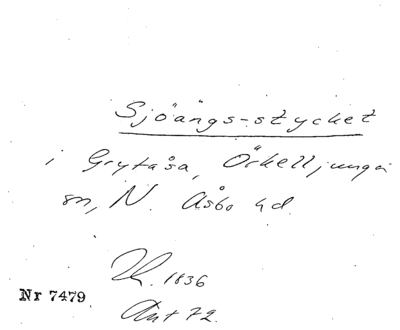 Sjöängs-stycket
i Grytåsa, Örkelljunga
sn, N. Åsbo hd.
1836
Nr 7479
Ant 72.